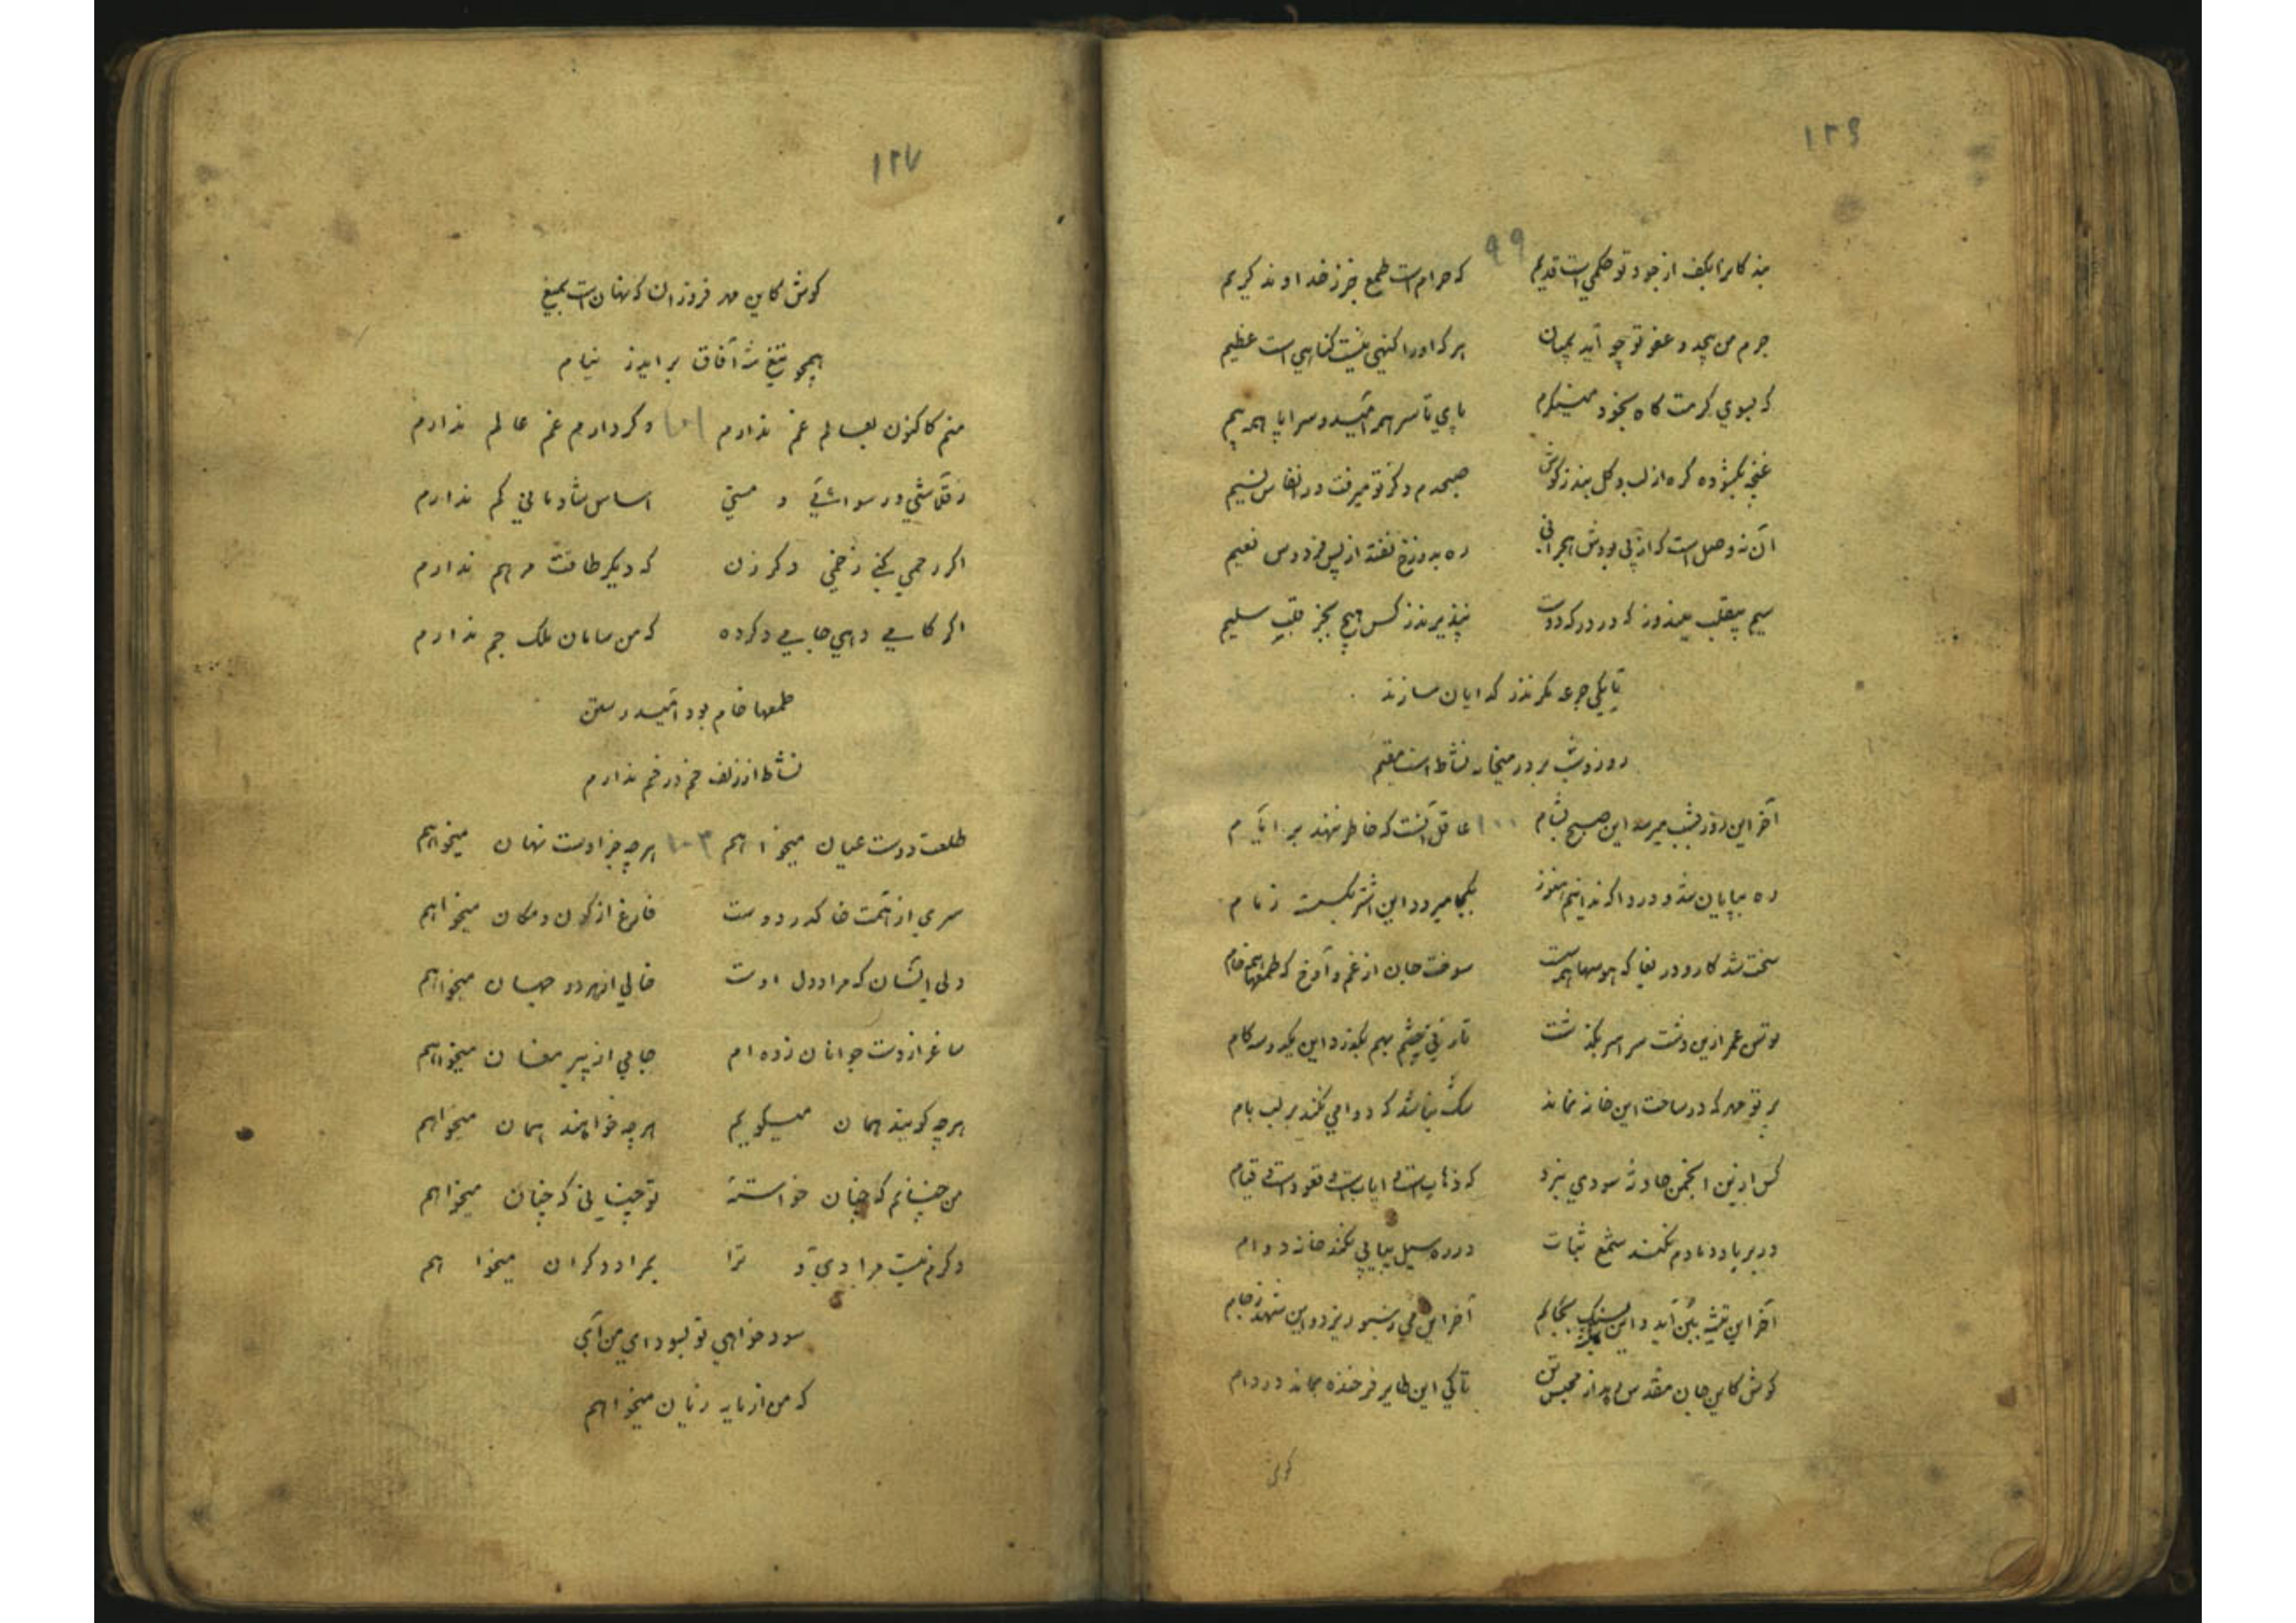 ۱۲۶
۹۹
بندکانرا بکف از جود تو حکمی است قدیم که حرام است طمع جز ز خداوند کریم
جرم من بیحد و عفو تو چو آید بمیان هر که او را کنهی نیست کناهی است عظیم
که ببوی کرمت کاه بخود مینکرم پای تا سر همه امید و سراپا همه بیم
غنچه نکشوده کره از لب و کل بند ز کوش صبحدم ذکر تو میرفت در انفاس نسیم
آن نه وصل است که از پی بودش هجرانی ره بدوزخ نفتد از پس فردوس نعیم
سیم بیقلب بیندوز که در درکه دوست نپذیرند ز کس هیچ بجز قلب سلیم
تا بیکی جرعه مکر نذر کدایان سازند
روز و شب بر در میخانه نشاط است مقیم
آخر این روز بشب میرسد این صبح بشام ۱۰۰ عاقل آنست که خاطر ننهد بر ایام
ره بپایان شد و دردا که ندانیم هنوز بکجا میرود این اشتر بکسسته زمام
سخت شد کار و دریغا که هوسها همه سست سوخت جان از غم و آوخ که طمعها همه خام
توسن عمر ازین دشت سراسر بکذشت تا زنی چشم بهم بکذرد این یکدوسه کام
پرتو مهر که در ساحت این خانه نماند شک نباشد که دوامی نکند بر لب بام
کس ازین انجمن حادثه سودی نبرد که ذهابست و ایابست و قعودست و قیام
در بر باد دمادم نکند شمع ثبات در ره سیل پیاپی نکند خانه دوام
آخر این تیشه ببن آید و این سنک بجام آخر این می ز سبو ریزد و این شهد ز جام
کوش کاین جان مقدس رهد از محبس تن تا کی این طایر فرخنده بماند در دام
کوش
۱۲۷
کوش کاین مهر فروزان که نهان است بمیغ
همچو تیغ شه آفاق براید ز نیام
منم کاکنون بعالم غم ندارم ۱۰۱ وکر دارم غم عالم ندارم
ز قلاشی و رسوائی و مستی اساس شادمانی کم ندارم
اکر رحمی کنی زخمی دکر زن که دیکر طاقت مرهم ندارم
اکر کامی دهی جامی دکر ده که من سامان ملک جم ندارم
طمعها خام بود امید رستن
نشاط از زلف خم در خم ندارم
طلعت دوست عیان میخواهم ۱۰۲ هر چه جز اوست نهان میخواهم
سری از همت خاک در دوست فارغ از کون و مکان میخواهم
دلی انسان که مرا و دل اوست خالی از هر دو جهان میخواهم
ساغر از دست جوانان زده ام جامی از پیر مغان میخواهم
هر چه کویند همان میکویم هر چه خواهند همان میخواهم
من چنانم که چنان خواسته تو چنانی که چنان میخواهم
وکرم نیست مرادی تو ترا بمراد دکران میخواهم
سود خواهی تو بسودای من آی
که من از مایه زیان میخواهم